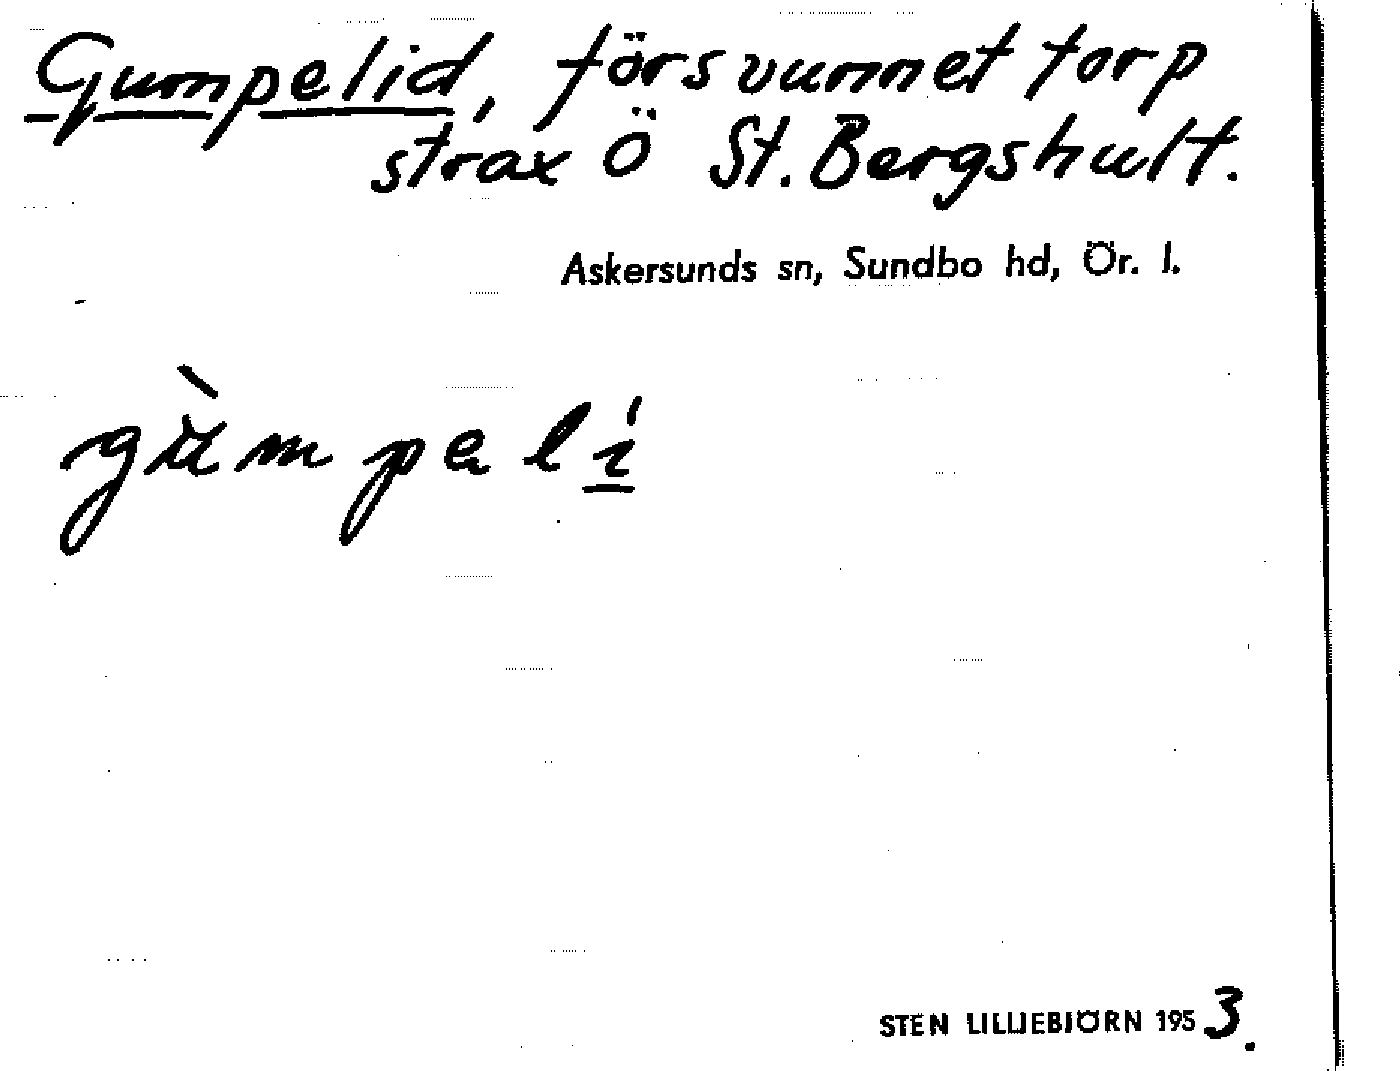 Gumpelid, försvunnet torp
strax Ö St. Bergshult.
Askersunds sn, Sundbo hd, Ör. l.
gùmpəlí
STEN LILLJEBJÖRN 1953.